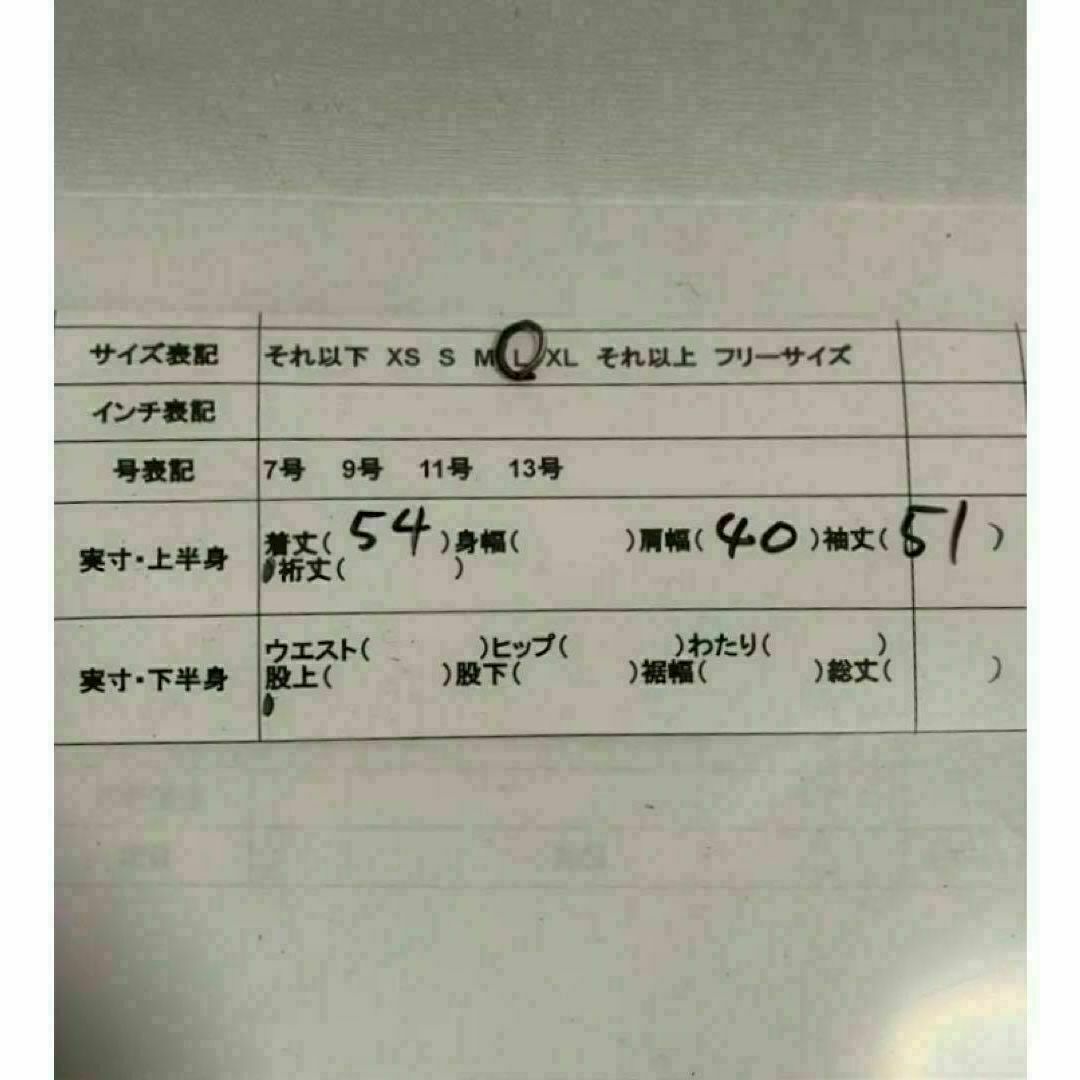 サイズ表記 それ以下 XS S M L XL それ以上 フリーサイズ
インチ表記
号表記 7号 9号 11号 13号
実寸・上半身 着丈( 54 )身幅( )肩幅( 40 )袖丈( 51 )
裄丈( )
実寸・下半身 ウエスト( )ヒップ( )わたり( )
股上( )股下( )裾幅( )総丈( )